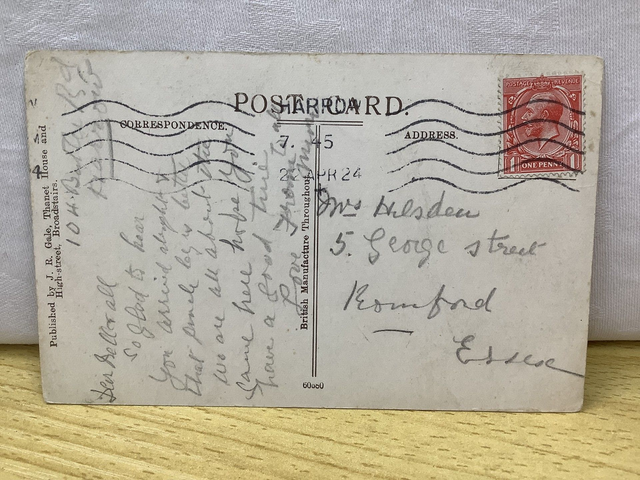 POST CARD.
CORRESPONDENCE.
ADDRESS.
HARROW
7. 45
22 APR 24
POSTAGE REVENUE
1 ONE PENNY 1
Mrs Hilsden
5. George Street
Romford
Essex
British Manufacture Throughout
60860
Published by J. R. Gale, Thanet House and
High-street, Broadstairs.
104
Dear Bell & all
So glad to hear
You arrived alright &
that leg is better
we are all about the
same here hope you
have a good time
Love from